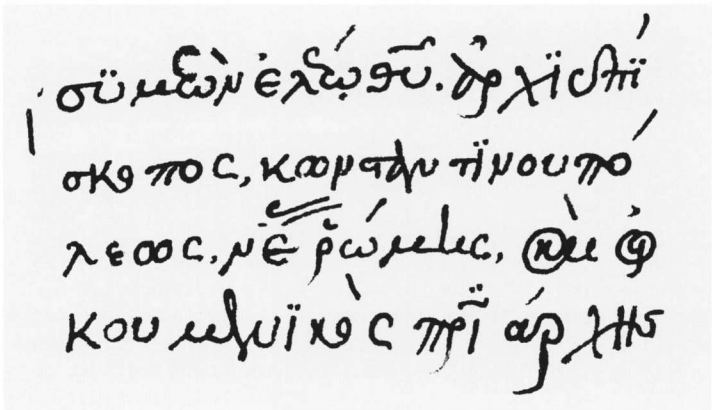 σϋμεὼν ἐλέῳ θυ̅. ἀρχϊεπΐ
σκοπος, κωνσταντϊνουπό
λεως, νέας ῥώμης, καὶ ὀι
κουμενϊκὸς πρϊάρχης